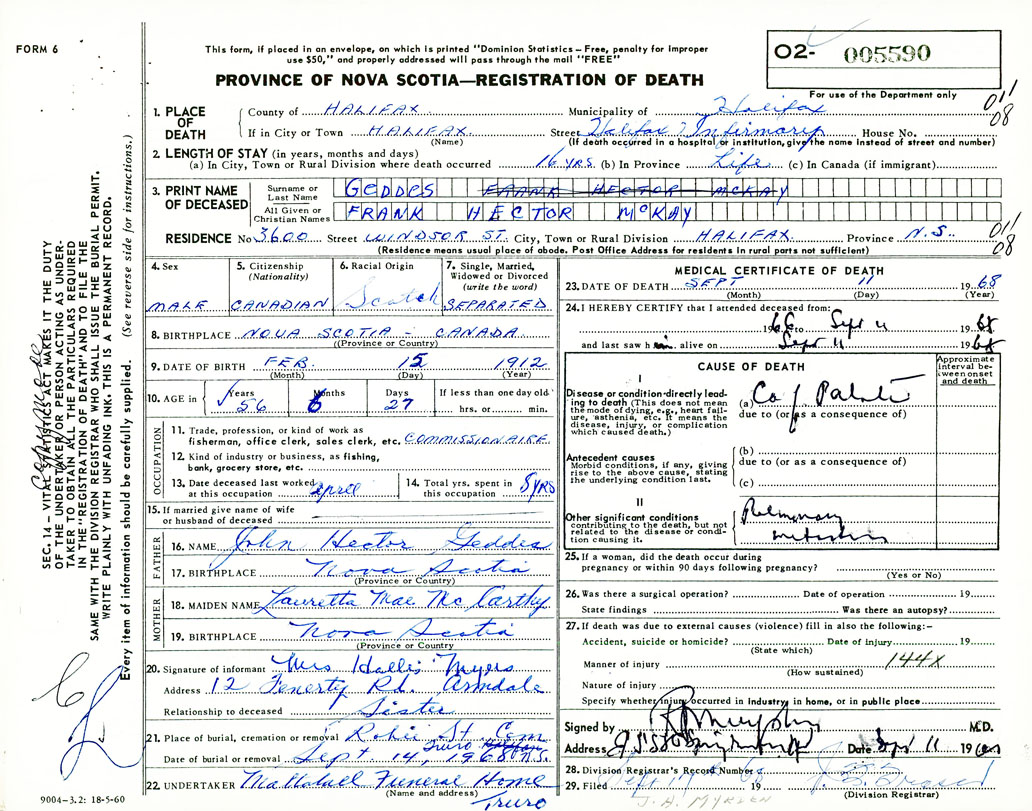 FORM 6
This form, if placed in an envelope, on which is printed "Dominion Statistics – Free, penalty for improper
use $50," and properly addressed will pass through the mail "FREE"
PROVINCE OF NOVA SCOTIA—REGISTRATION OF DEATH
O2- 005590
For use of the Department only
011
08
1. PLACE OF DEATH
County of HALIFAX Municipality of Halifax
If in City or Town HALIFAX Street Halifax Infirmary House No.
(Name) (If death occurred in a hospital or institution, give the name instead of street and number)
2. LENGTH OF STAY (in years, months and days)
(a) In City, Town or Rural Division where death occurred 16 YRS (b) In Province Life (c) In Canada (if immigrant)
3. PRINT NAME OF DECEASED
Surname or Last Name GEDDES FRANK HECTOR MCKAY
All Given or Christian Names FRANK HECTOR McKAY
RESIDENCE No 3600 Street WINDSOR ST. City, Town or Rural Division HALIFAX Province N.S.
011
08
(Residence means usual place of abode. Post Office Address for residents in rural parts not sufficient)
4. Sex MALE
5. Citizenship (Nationality) CANADIAN
6. Racial Origin Scotch
7. Single, Married, Widowed or Divorced (write the word) SEPARATED
8. BIRTHPLACE NOVA SCOTIA - CANADA
(Province or Country)
9. DATE OF BIRTH FEB. 15 1912
(Month) (Day) (Year)
10. AGE in Years 56 Months 6 Days 27 If less than one day old
hrs. or min.
OCCUPATION
11. Trade, profession, or kind of work as
fisherman, office clerk, sales clerk, etc. COMMISSIONAIRE
12. Kind of industry or business, as fishing,
bank, grocery store, etc.
13. Date deceased last worked at this occupation April
14. Total yrs. spent in this occupation 8 yrs
15. If married give name of wife
or husband of deceased
FATHER
16. NAME John Hector Geddes
17. BIRTHPLACE Nova Scotia
(Province or Country)
MOTHER
18. MAIDEN NAME Lauretta Mae McCarthy
19. BIRTHPLACE Nova Scotia
(Province or Country)
20. Signature of informant Mrs Hallis Myers
Address 12 Fenerty Rd. Armdale
Relationship to deceased Sister
21. Place of burial, cremation or removal Robie St Cem
Truro
Date of burial or removal Sept. 14, 1968 N.S.
22. UNDERTAKER Mattatall Funeral Home
(Name and address)
Truro
MEDICAL CERTIFICATE OF DEATH
23. DATE OF DEATH SEPT 11 1968
(Month) (Day) (Year)
24. I HEREBY CERTIFY that I attended deceased from:
1968 to Sept 11 1968
and last saw him alive on Sept 11 1968
CAUSE OF DEATH
Approximate interval between onset and death
I
Disease or condition directly leading to death (This does not mean the mode of dying, e.g., heart failure, asthenia, etc. It means the disease, injury, or complication which caused death.)
(a) Ca of Palate
due to (or as a consequence of)
Antecedent causes
Morbid conditions, if any, giving rise to the above cause, stating the underlying condition last.
(b)
due to (or as a consequence of)
(c)
II
Other significant conditions contributing to the death, but not related to the disease or condition causing it.
Pulmonary
25. If a woman, did the death occur during
pregnancy or within 90 days following pregnancy?
(Yes or No)
26. Was there a surgical operation? Date of operation 19
State findings Was there an autopsy?
27. If death was due to external causes (violence) fill in also the following:–
Accident, suicide or homicide? Date of injury 19
(State which)
Manner of injury 144X
(How sustained)
Nature of injury
Specify whether injury occurred in industry, in home, or in public place
Signed by R Murphy M.D.
Address Date Sept 11 1968
28. Division Registrar's Record Number
29. Filed
(Division Registrar)
SEC. 14 – VITAL STATISTICS ACT MAKES IT THE DUTY
OF THE UNDERTAKER OR PERSON ACTING AS UNDER-
TAKER TO OBTAIN ALL THE PARTICULARS REQUIRED
IN THE "REGISTRATION OF DEATH" AND TO FILE THE
SAME WITH THE DIVISION REGISTRAR WHO SHALL ISSUE THE BURIAL PERMIT.
WRITE PLAINLY WITH UNFADING INK. THIS IS A PERMANENT RECORD.
Every item of information should be carefully supplied. (See reverse side for instructions.)
9004-3.2: 18-5-60